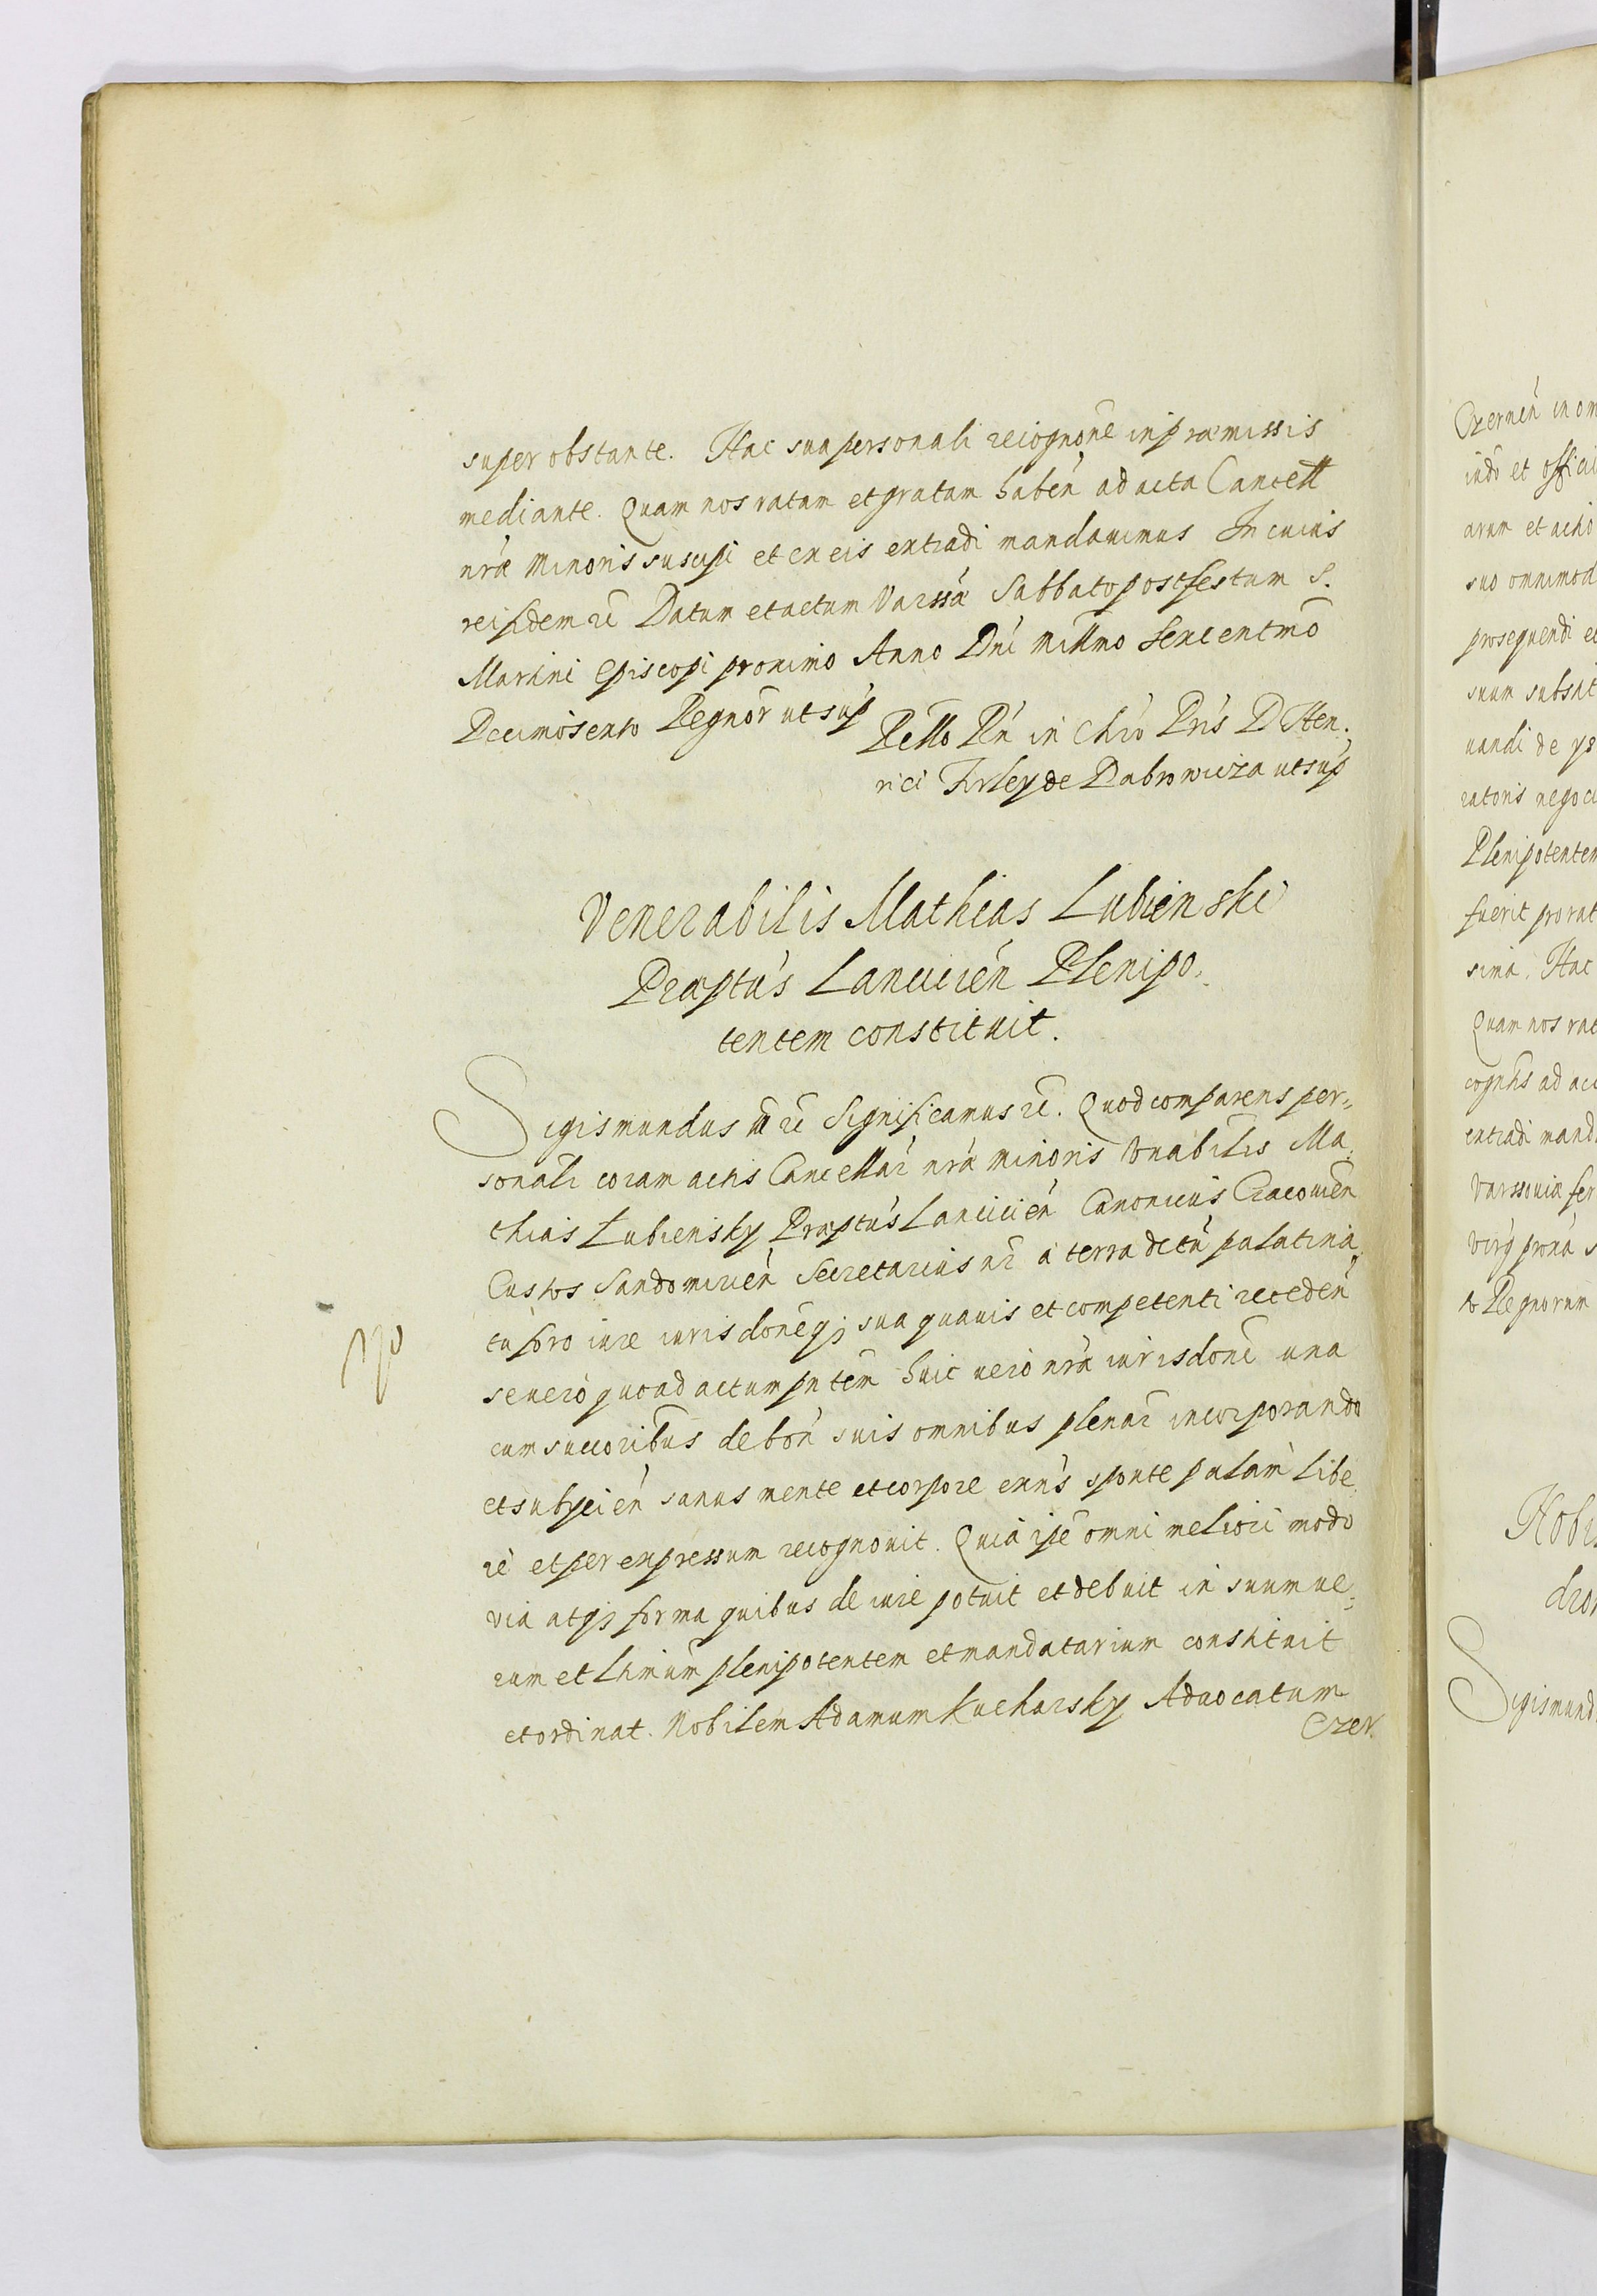 super obstante. Hac sua personali recognõne in præmissis
mediante. Quam nos ratam et gratam habeñ ad acta Cancell
nrǽ minoris suscipi et ex eis extradi mandavimus In cuius
rei fidem rc̃ Datum et actum Varssǽ Sabbato post festum S.
Martini Episcopi proximo Anno Dni Millmo Sexcentmõ
Decimosexto Regnõr ut sup̃
Rello Rñ in Chro Pris D Hen.
rici Firley de Dabrowicza ut sup̃
Venerabilis Mathias Lubienski
Præptús Lanciciéñ Plenipo,
tentem constituit.
Sigismundus III rc̃ Significamus rc̃. Quod comparens per,,
sonalr coram actis Cancellar̃ nrǽ minoris Vnabilis Ma,
thias Lubiensky Præptús Lanciciéñ Canonicus Cracovieñ
Custos Sandomirieñ Secretarius nr̃ á terra dictũ palatina,
tu foro iure iurisdonẽqȝ sua quavis et competenti recedeñ
se vero quo ad actum pñtem huic vero nrǽ iurisdonẽ una
cum succoribus de boñ suis omnibus plenar̃ incorporando
et subyciéñ sanus mente et corpore exñs sponte palam libe,
rè et per expressum recognovit. Quia ipẽ omni meliori modo
via atqȝ forma quibus de iure potuit et debuit in suum ve,
rum et Lhmũm plenipotentem et mandatarium constituit
et ordinat. Nobilem Adamum Kucharsky Advocatum
Czer.
Czerneñ in om
indo et offici
arum et actio
suo omnimod
prosequendi et
suum substi
uandi de
ratoris negoci
Plenipotentem
fuerit pro rat
sima. Hac
Quam nos rat
ad ac
extradi mand
Varssoviæ fer
Virg
to Regnorum
Nobi
Sigismund